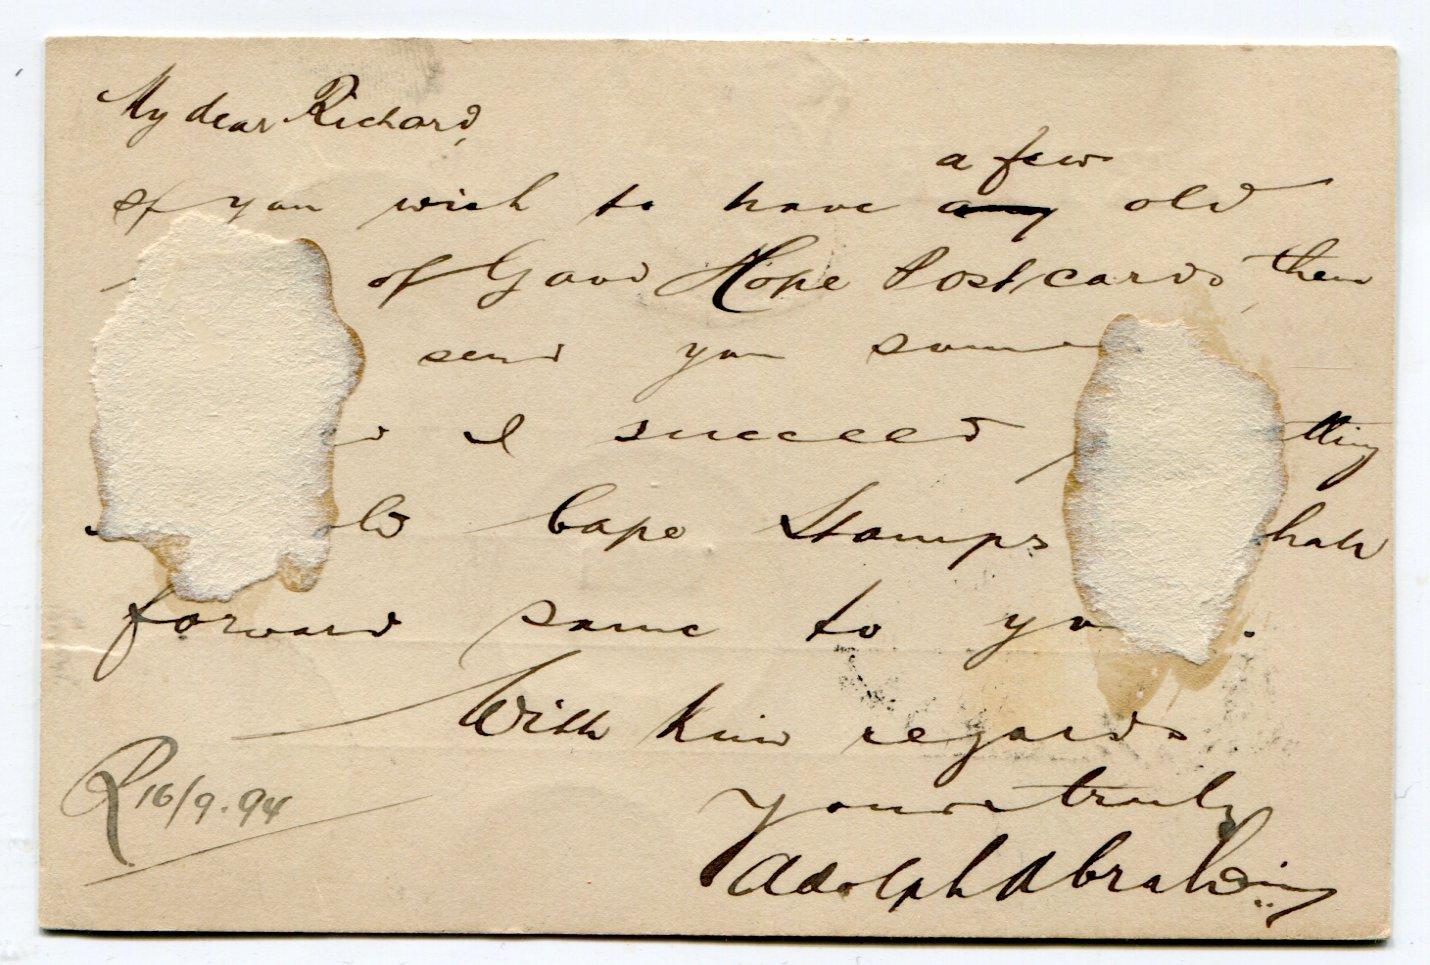 My dear Richard,
a few
If you wish to have any old
of Good Hope Postcards then
send you some
I succeed
Cape Stamps
forward same to
With kind regards
yours truly
Adolph Abrahim
R 16/9.94